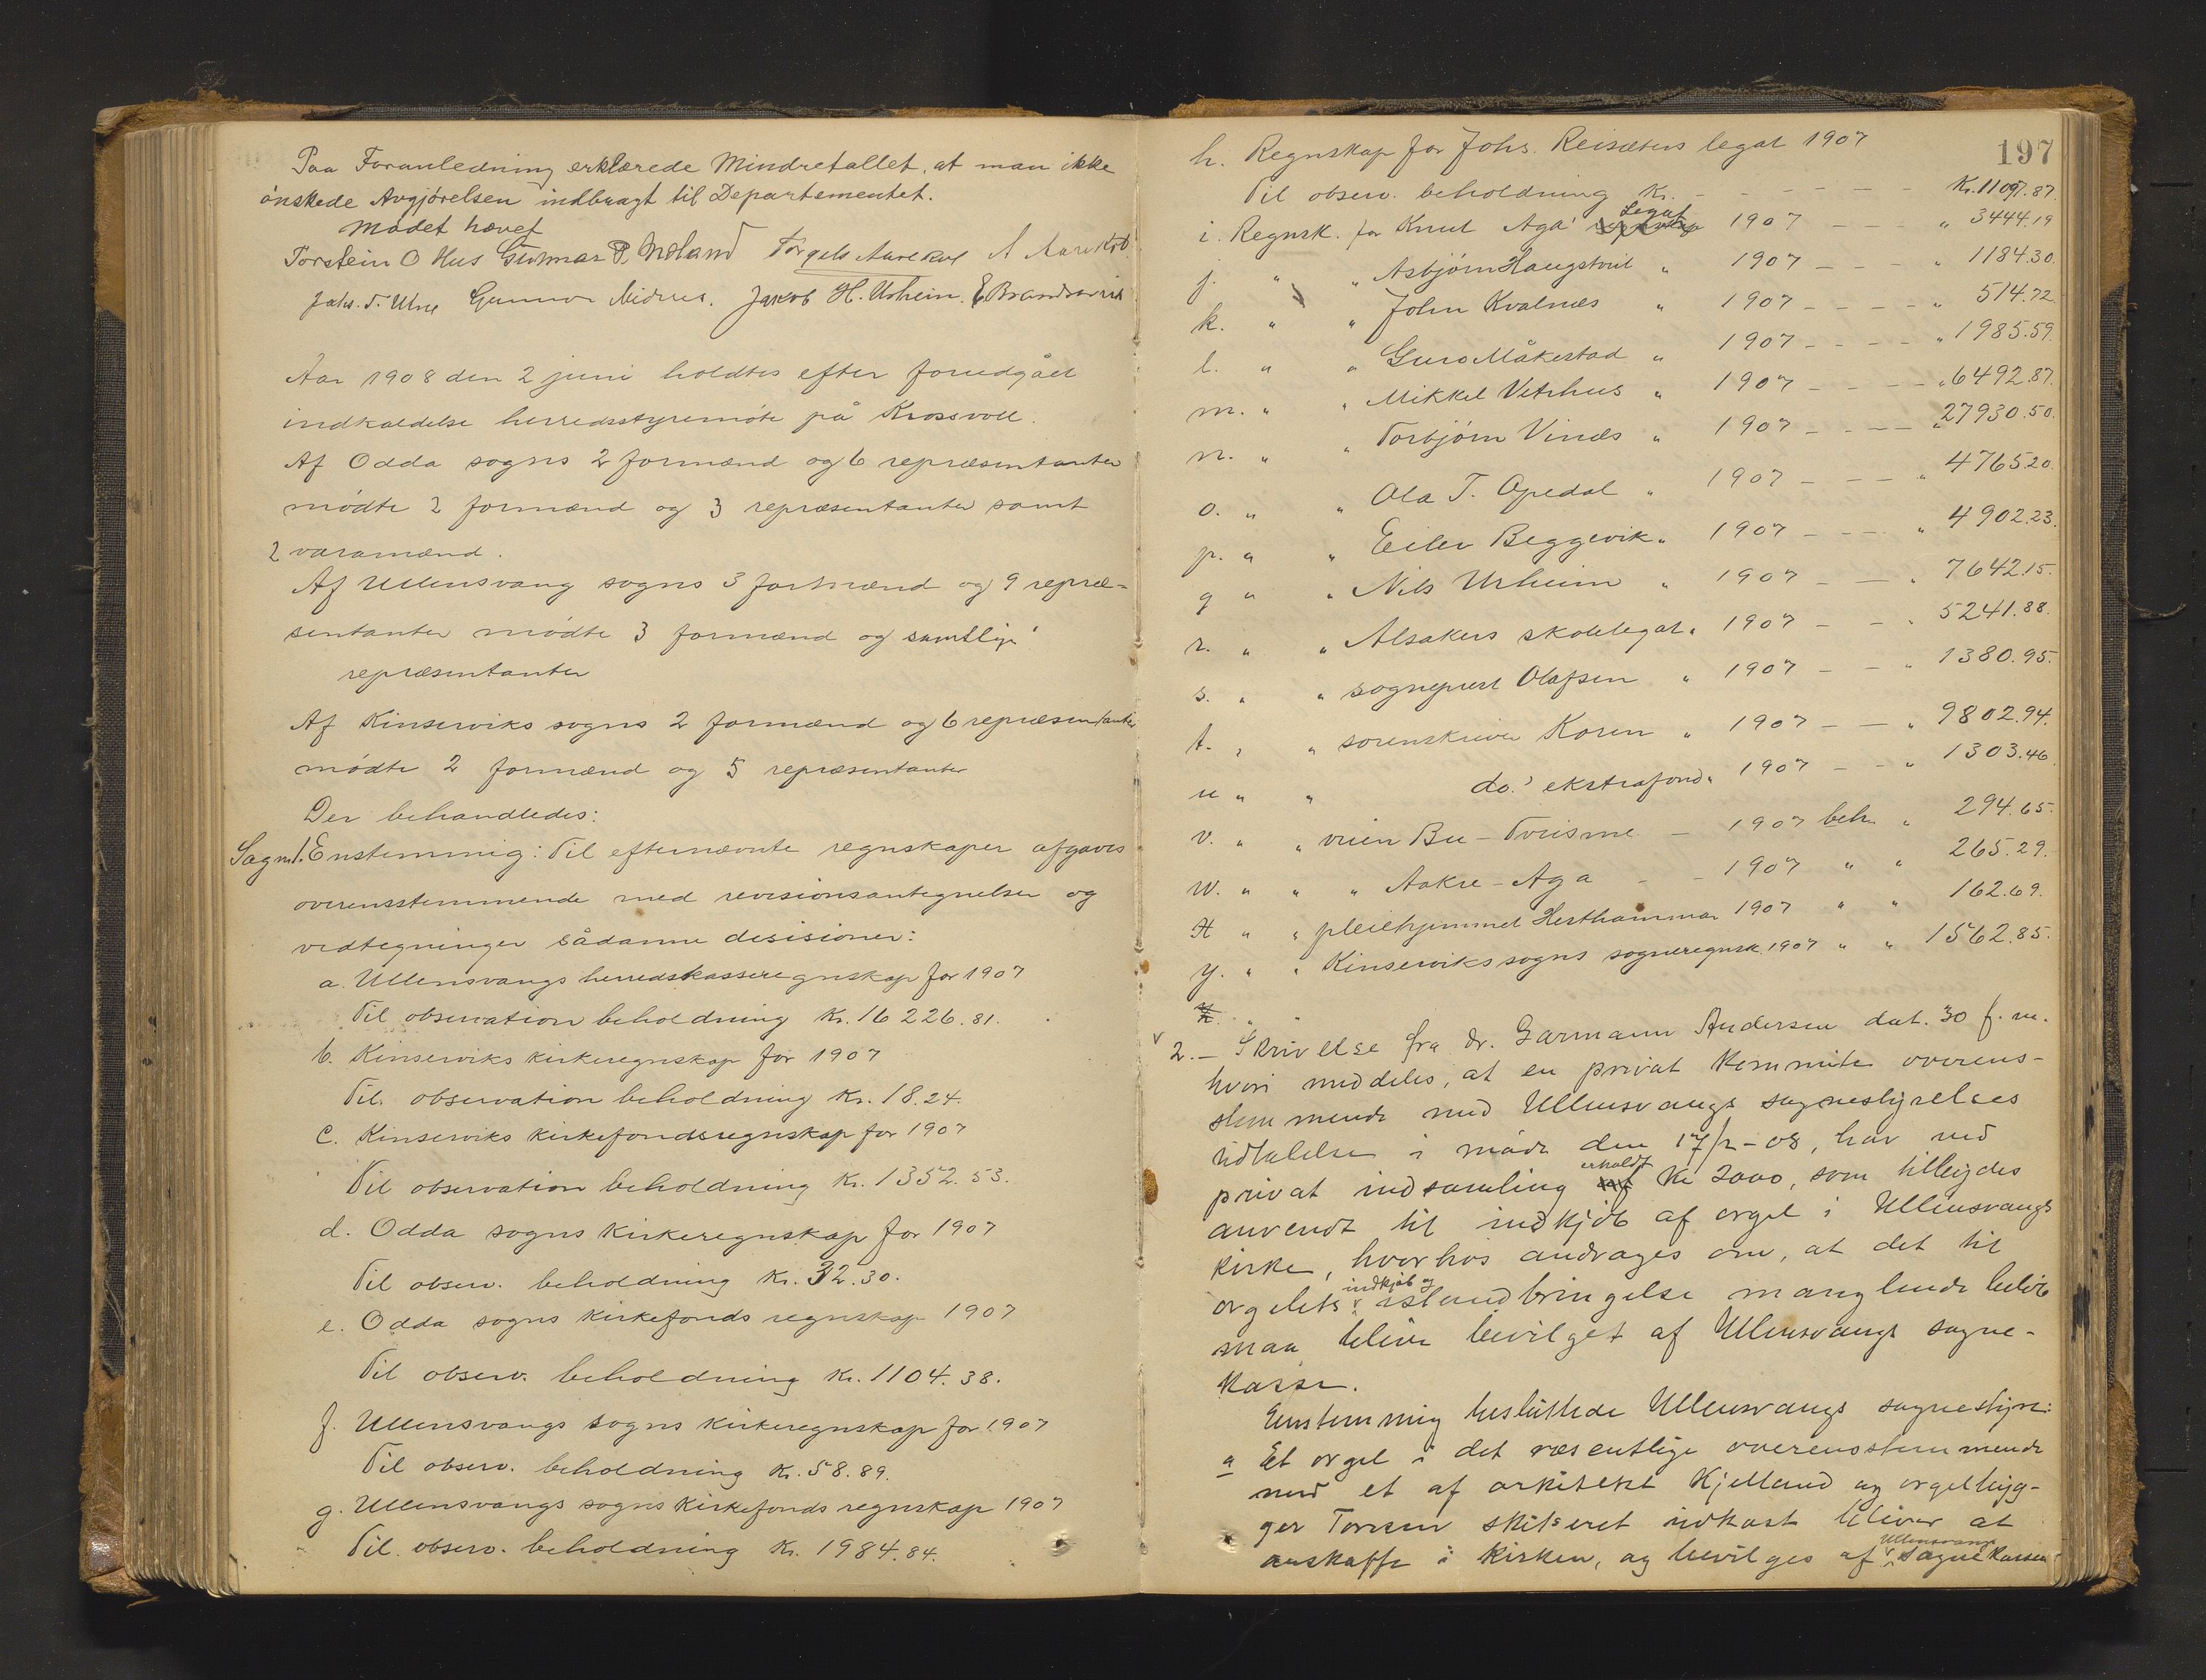 Paa Foranledning erklærede Mindretallet, at man ikke
ønskede Avgjørelsen indbragt til Departementet.
Mødet hævet
Torstein O Hus Gunnar P. Mæland Torgils Aarekol A Aarekol
Johs. T. Utne Gunnar Nidrus. Jakob H. Urheim. E Brandsvik
Aar 1908 den 2 juni holdtes efter forudgået
indkaldelse herredsstyremöte på Krossvoll.
Af Odda sogns 2 formænd og 6 repræsentanter
mödte 2 formænd og 3 repræsentanter samt
2 varamænd.
Af Ullensvang sogns 3 formænd og 9 repræ-
sentanter mödte 3 formænd og samtlige
repræsentanter
Af Kinserviks sogns 2 formænd og 6 repræsentanter
mödte 2 formænd og 5 repræsentanter
Der behandledes:
Sag nr 1. Enstemmig: Til efternævnte regnskaper afgaves
overensstemmende med revisionsantegnelser og
vedtegninger sådanne desisioner:
a. Ullensvangs herredskasseregnskap for 1907
Til observation beholdning Kr. 16 226.81.
b. Kinserviks kirkeregnskap for 1907
Til observation beholdning Kr. 18.24.
c. Kinserviks kirkefondsregnskap for 1907
Til observation beholdning Kr. 1352.53.
d. Odda sogns kirkeregnskap for 1907
Til observ. beholdning Kr. 32.30.
e. Odda sogns kirkefonds regnskap 1907
Til observ. beholdning Kr. 1104.38.
f. Ullensvangs sogns kirkeregnskap for 1907
Til observ. beholdning Kr. 58.89.
g. Ullensvangs sogns kirkefonds regnskap 1907
Til observ. beholdning Kr. 1984.84.
197
h. Regnskap for Johs. Reisæters legat 1907
Til observ. beholdning Kr. - - - - - - Kr. 1109.87
i. Regnsk. for Knut Aga' Legat 1907 - - - " 3444.19
j. " " Asbjörn Haugstvil " 1907 - - - " 1184.30.
k. " " John Kvalnæs " 1907 - - - - " 514.72.
l. " " Guro Måkestad " 1907 - - - - " 1985.59.
m. " " Mikkel Vetrhus " 1907 - - - - " 6492.87.
n. " " Torbjörn Vinæs " 1907 - - - - " 27930.50.
o. " " Ola T. Opedal " 1907 - - - " 4765.20.
p. " " Eiler Beggevik " 1907 - - - " 4902.23.
q " " Nils Urheim " 1907 - - " 7642.15.
r. " " Alsakers skolelegat " 1907 - - " 5241.88.
s. " " sogneprest Olafsen " 1907 - - " 1380.95.
t. " " sorenskriver Koren " 1907 - - " 9802.94.
u " " do.' ekstrafond " 1907 - - " 1303.46.
v. " " veien Bu - Tveisme - 1907 beh. " 294.65.
w. " " " Aakre - Aga - - 1907 " " 265.29.
x " " pleiehjemmet Hesthammar 1907 " " 162.69.
y. " " Kinserviks sogns sogneregnsk. 1907 " " 1562.85.
z. " "
2. - Skrivelse fra dr. Garmann Andersen dat. 30 f. m.
hvori meddeles, at en privat kommite overens-
stemmende med Ullensvangs sognestyrelses
udtalelse i møde den 17/2-08, har ved
privat indsamling erholdt Kr 2000, som tilbydes
anvendt til indkjøb af orgel i Ullensvangs
kirke, hvorhos andrages om, at det til
orgelets indkjøb og istandbringelse manglende beløb
maa blive bevilget af Ullensvangs sogne-
kasse.
Enstemmig besluttede Ullensvangs sognestyre:
a Et orgel i det væsentlige overensstemmende
med et af arkitekt Kjelland og orgelbyg-
ger Torresen skitseret udkast bliver at
anskaffe i kirken, og bevilges af Ullensvangs sognekasse